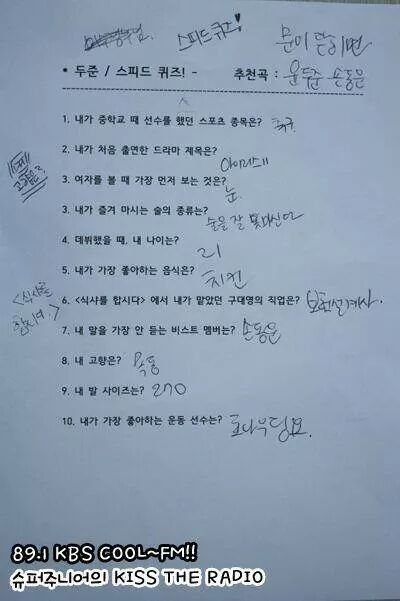 스피드 퀴즈!
문이 닫히면
* 두준 / 스피드 퀴즈! -
추천곡 : 윤두준 손동운
1. 내가 중학교 때 선수를 했던 스포츠 종목은? 축구
2. 내가 처음 출연한 드라마 제목은? 아이리스 II
3. 여자를 볼 때 가장 먼저 보는 것은? 눈
3. 내가 즐겨 마시는 술의 종류는? 술을 잘 못마신다
4. 데뷔했을 때, 내 나이는? 21
5. 내가 가장 좋아하는 음식은? 치킨
<식샤를 합시다>
6. <식샤를 합시다> 에서 내가 맡았던 구대영의 직업은? 보험설계사.
7. 내 말을 가장 안 듣는 비스트 멤버는? 손동운
8. 내 고향은?
9. 내 발 사이즈는? 270
10. 내가 가장 좋아하는 운동 선수는? 호나우딩요.
89.1 KBS COOL~FM!!
슈퍼주니어의 KISS THE RADIO